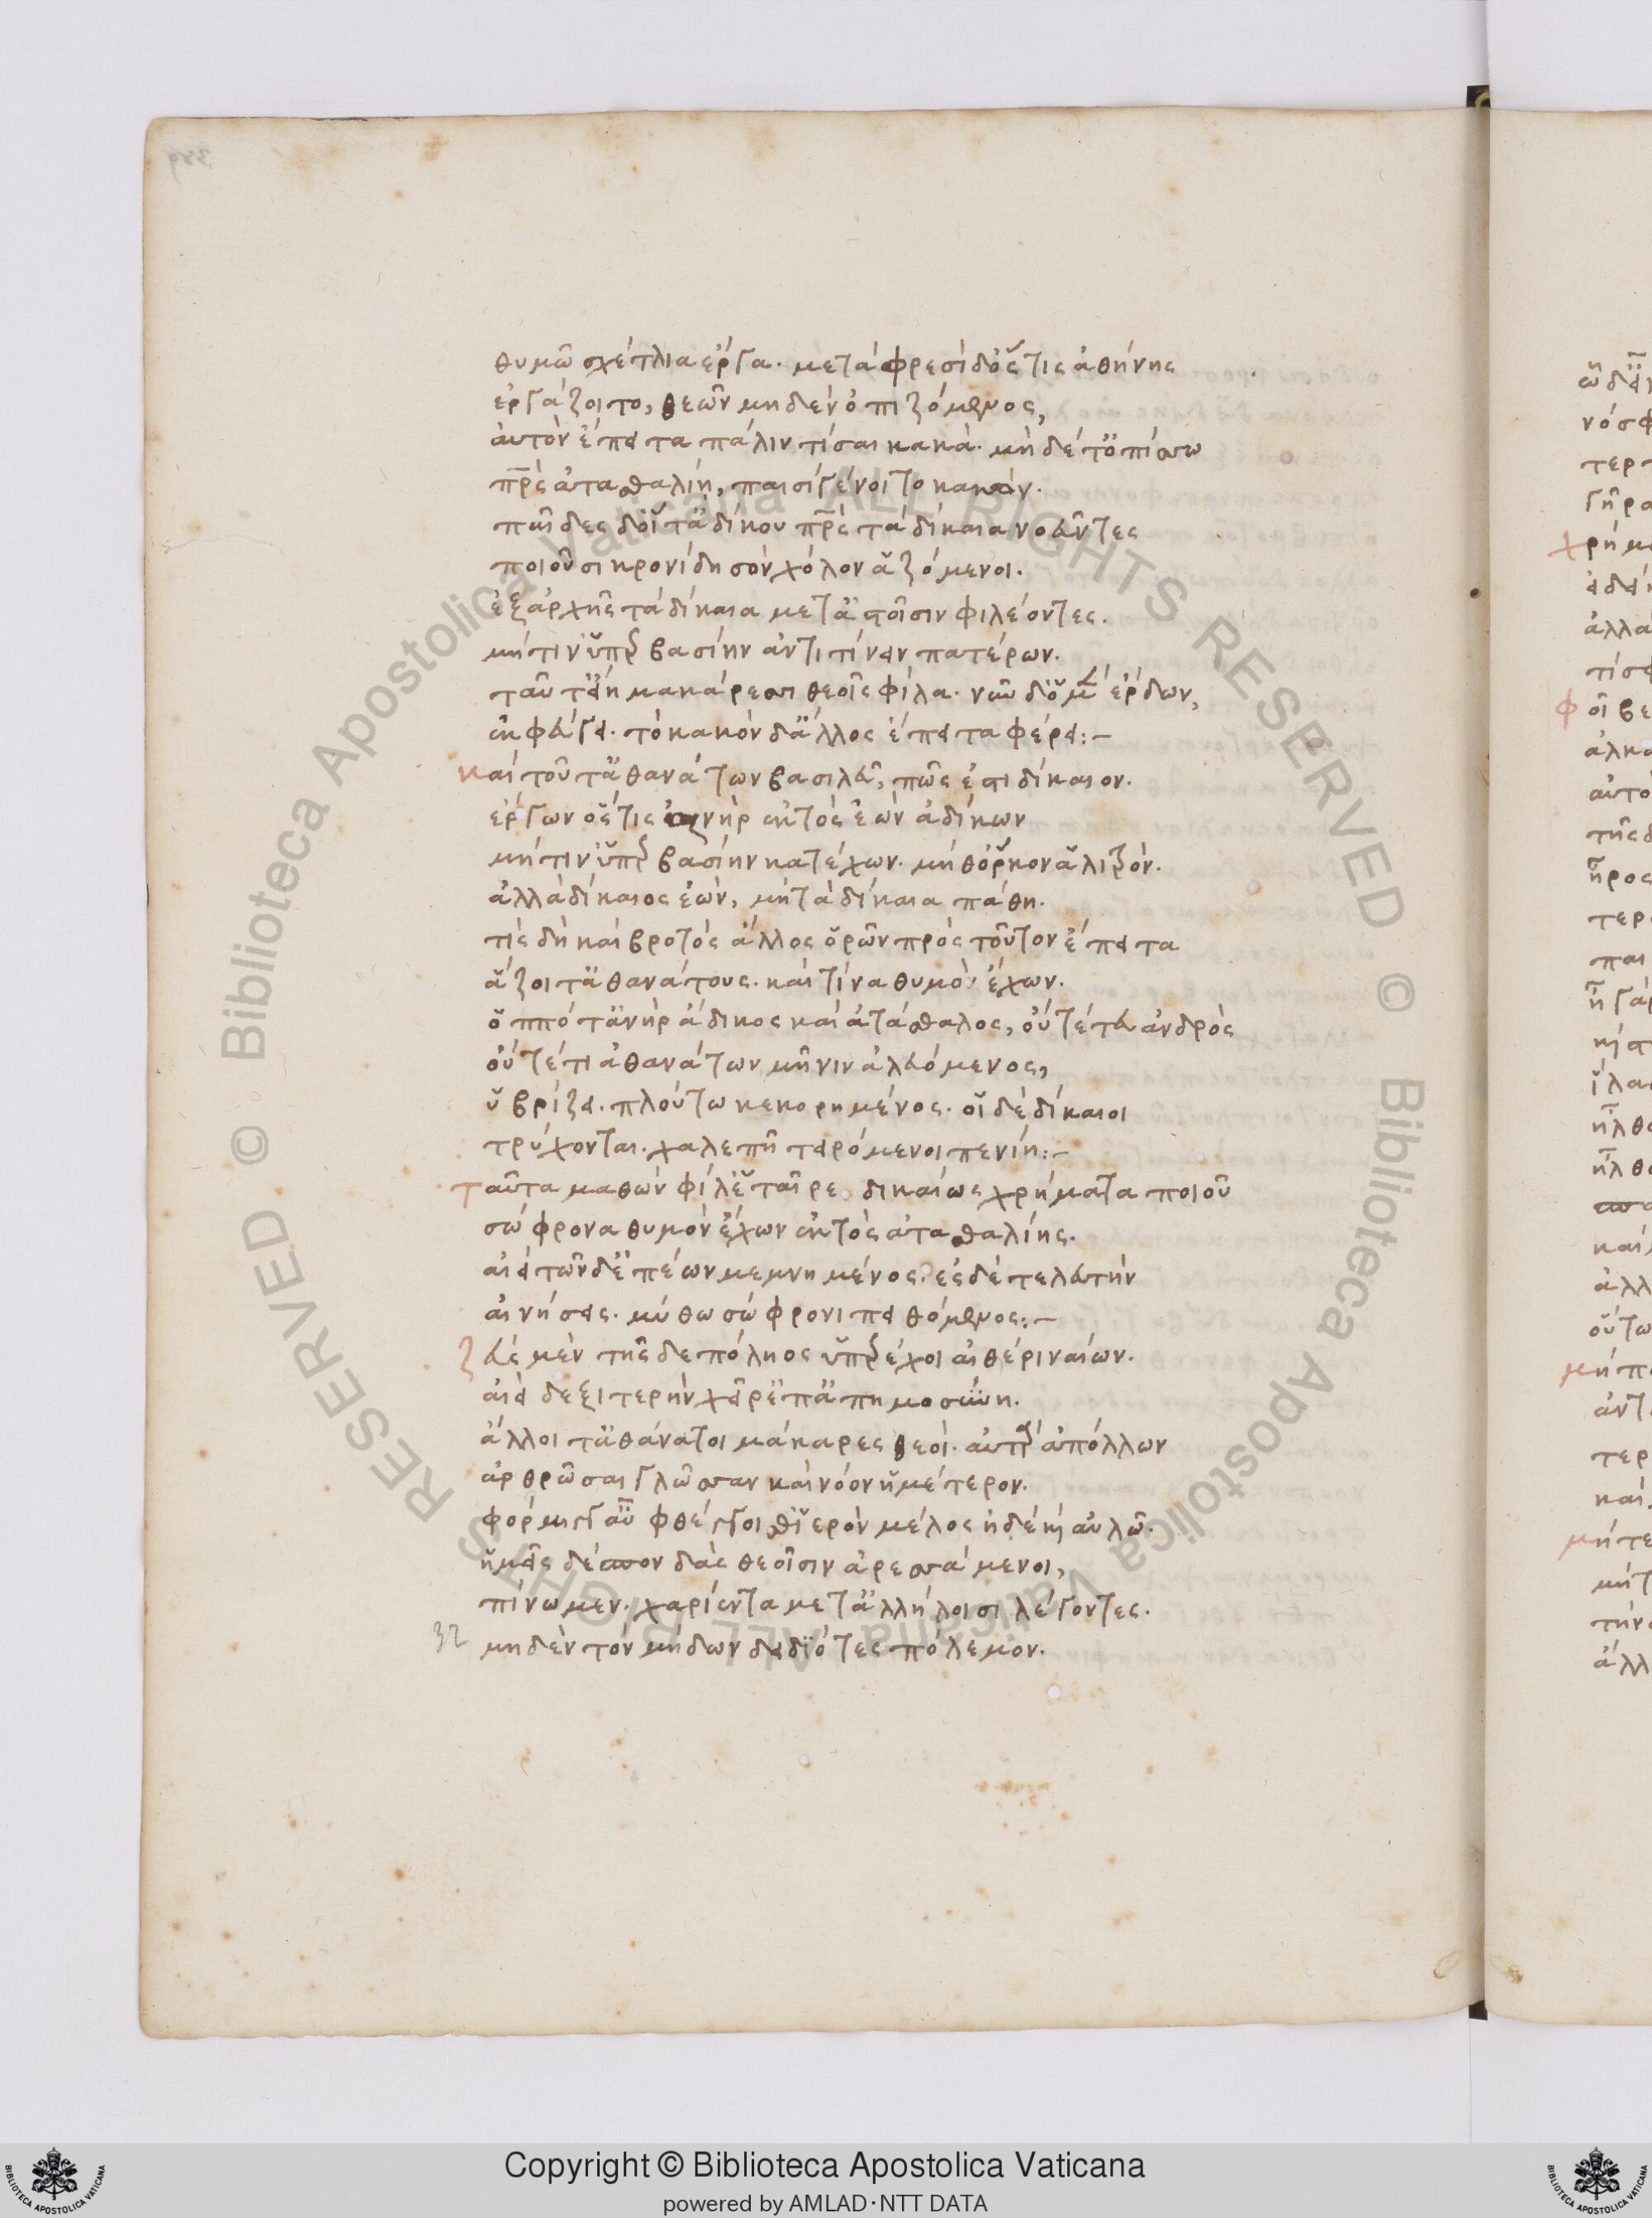 θυμῶ σχέτλια ἔργα. μετὰ φρεσὶ δ' ὅς τις ἀθήνης
ἐργάζοιτο, θεῶν μηδὲν ὀπιζόμενος,
αὐτὸν ἔπειτα πάλιν τίσαι κακά. μὴ δέ τ' ὀπίσσω
πρς ἀτασθαλίη, παισὶ γένοιτο κακόν.
παῖδες δ' οἵ τ' ἀδίκου πρς τὰ δίκαια νοεῦντες
ποιοῦσι κρονίδη σὸν χόλον ἁζόμενοι.
ἐξ ἀρχῆς τὰ δίκαια μετ' ἀστοῖσιν φιλέοντες.
μή τιν' ὑπερβασίην ἀντιτίνειν πατέρων.
ταῦτ' εἴη μακάρεσσι θεοῖς φίλα. νῦν δ' ὁ μὲν ἔρδων,
ἐκφεύγει. τὸ κακὸν δ' ἄλλος ἔπειτα φέρει:-
καὶ τοῦτ' ἀθανάτων βασιλεῦ, πῶς ἐστι δίκαιον.
ἔργων ὅς τις ἀνὴρ ἐκτὸς ἐὼν ἀδίκων
μή τιν' ὑπερβασίην κατέχων. μήθ' ὅρκον ἀλιτρόν.
ἀλλὰ δίκαιος ἐὼν, μὴ τὰ δίκαια πάθη.
τίς δὴ καὶ βροτὸς ἄλλος ὁρῶν πρὸς τοῦτον ἔπειτα
ἅζοιτ' ἀθανάτους. καὶ τίνα θυμὸν ἔχων.
ὁππότ' ἀνὴρ ἄδικος καὶ ἀτάσθαλος, οὔτέ τευ ἀνδρὸς
οὔτέ τι ἀθανάτων μῆνιν ἀλευόμενος,
ὑβρίζει. πλούτω κεκορημένος. οἱ δὲ δίκαιοι
τρύχονται. χαλεπῆ τειρόμενοι πενίη:-
ταῦτα μαθὼν φίλ' ἑταῖρε δικαίως χρήματα ποιοῦ
σώφρονα θυμὸν ἔχων ἐκτὸς ἀτασθαλίης.
αἰεὶ τῶν δ' ἐπέων μεμνημένος. ἐς δὲ τελευτὴν
αἰνήσεις. μύθω σώφρονι πειθόμενος:-
ζεὺς μὲν τῆς δε πόληος ὑπερέχοι αἰθέρι ναίων.
αἰεὶ δεξιτερὴν χεῖρ' ἐπ' ἀπημοσύνη.
ἄλλοι τ' ἀθάνατοι μάκαρες θεοί. αὐτὰρ ἀπόλλων
ἀρθρῶσαι γλῶσσαν καὶ νόον ἡμέτερον.
φόρμιγγ' αὖ φθέγγοιθ' ἱερὸν μέλος ἠδὲ καὶ αὐλῶ.
ἡμεῖς δὲ σπονδὰς θεοῖσιν ἀρεσσάμενοι,
πίνωμεν. χαρίεντα μετ' ἀλλήλοισι λέγοντες.
32 μηδὲν τὸν μήδων δειδιότες πόλεμον.
Copyright © Biblioteca Apostolica Vaticana
powered by AMLAD·NTT DATA